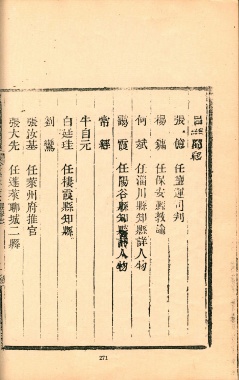 張 任鹽運司判
楊 任保安縣教諭
何斌 任淄川縣知縣詳人物
霞 任陽谷縣知縣詳人物
常經
牛自元
白廷珪 任棲霞縣知縣
劉鸞
張汝基 任萊州府推官
張大先 任蓬萊聊城二縣
271